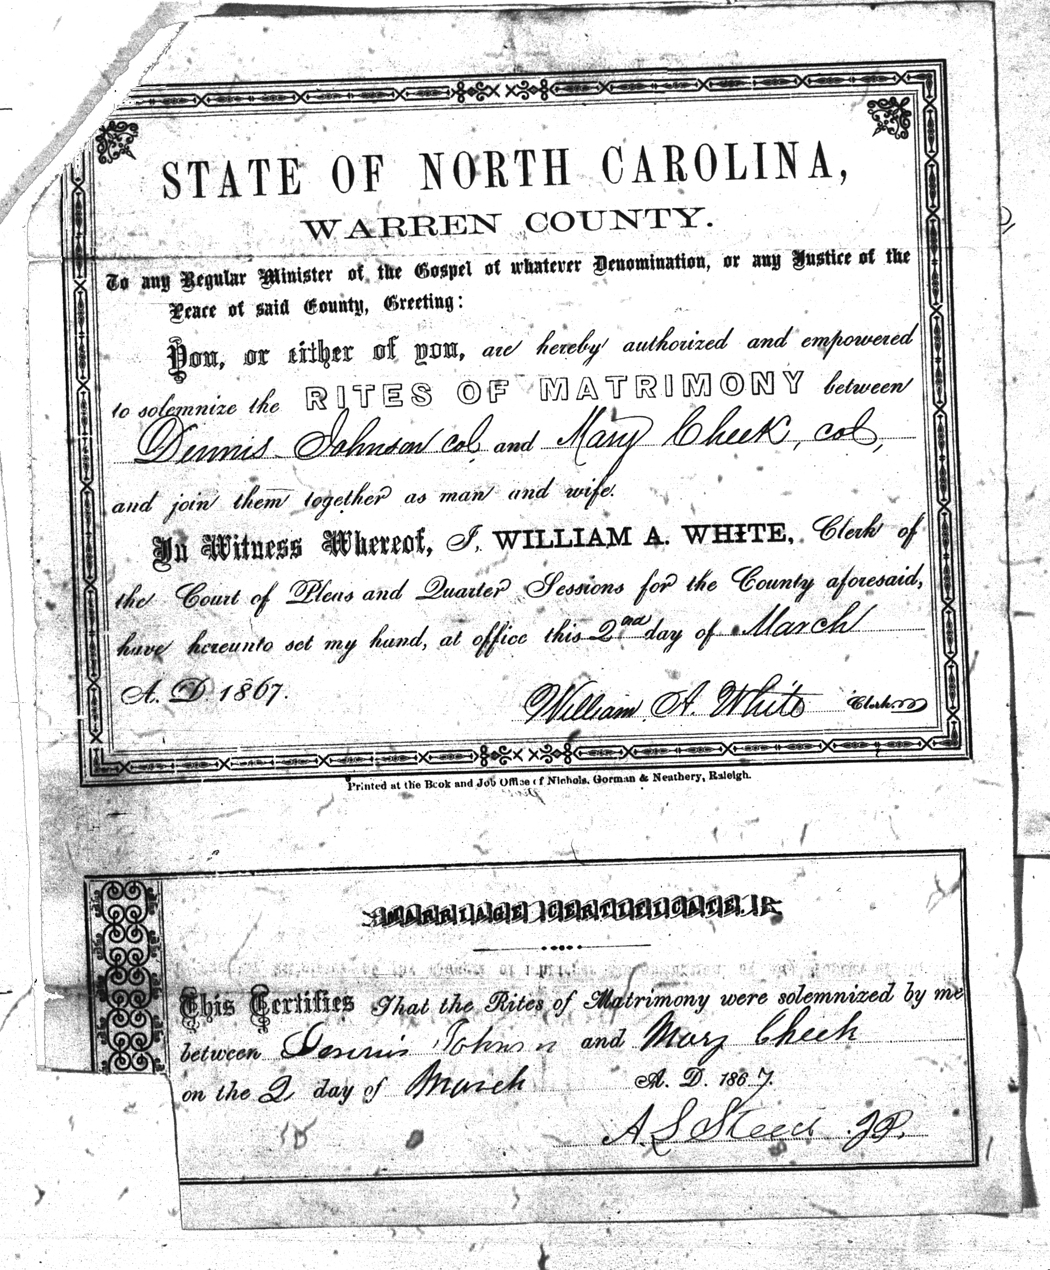 STATE OF NORTH CAROLINA,
WARREN COUNTY.
To any Regular Minister of the Gospel of whatever Denomination, or any Justice of the
Peace of said County, Greeting:
You, or either of you, are hereby authorized and empowered
to solemnize the RITES OF MATRIMONY between
Dennis Johnson col and Mary Cheek, col,
and join them together as man and wife.
In Witness Whereof, I, WILLIAM A. WHITE, Clerk of
the Court of Pleas and Quarter Sessions for the County aforesaid,
have hereunto set my hand, at office this 2nd day of March
A. D. 1867.
William A. White Clerk.
Printed at the Book and Job Office of Nichols, Gorman & Neathery, Raleigh.
MARRIAGE CERTIFICATE.
This Certifies That the Rites of Matrimony were solemnized by me
between Dennis Johnson and Mary Cheek
on the 2 day of March A. D. 1867.
A. L. Steed J.P.